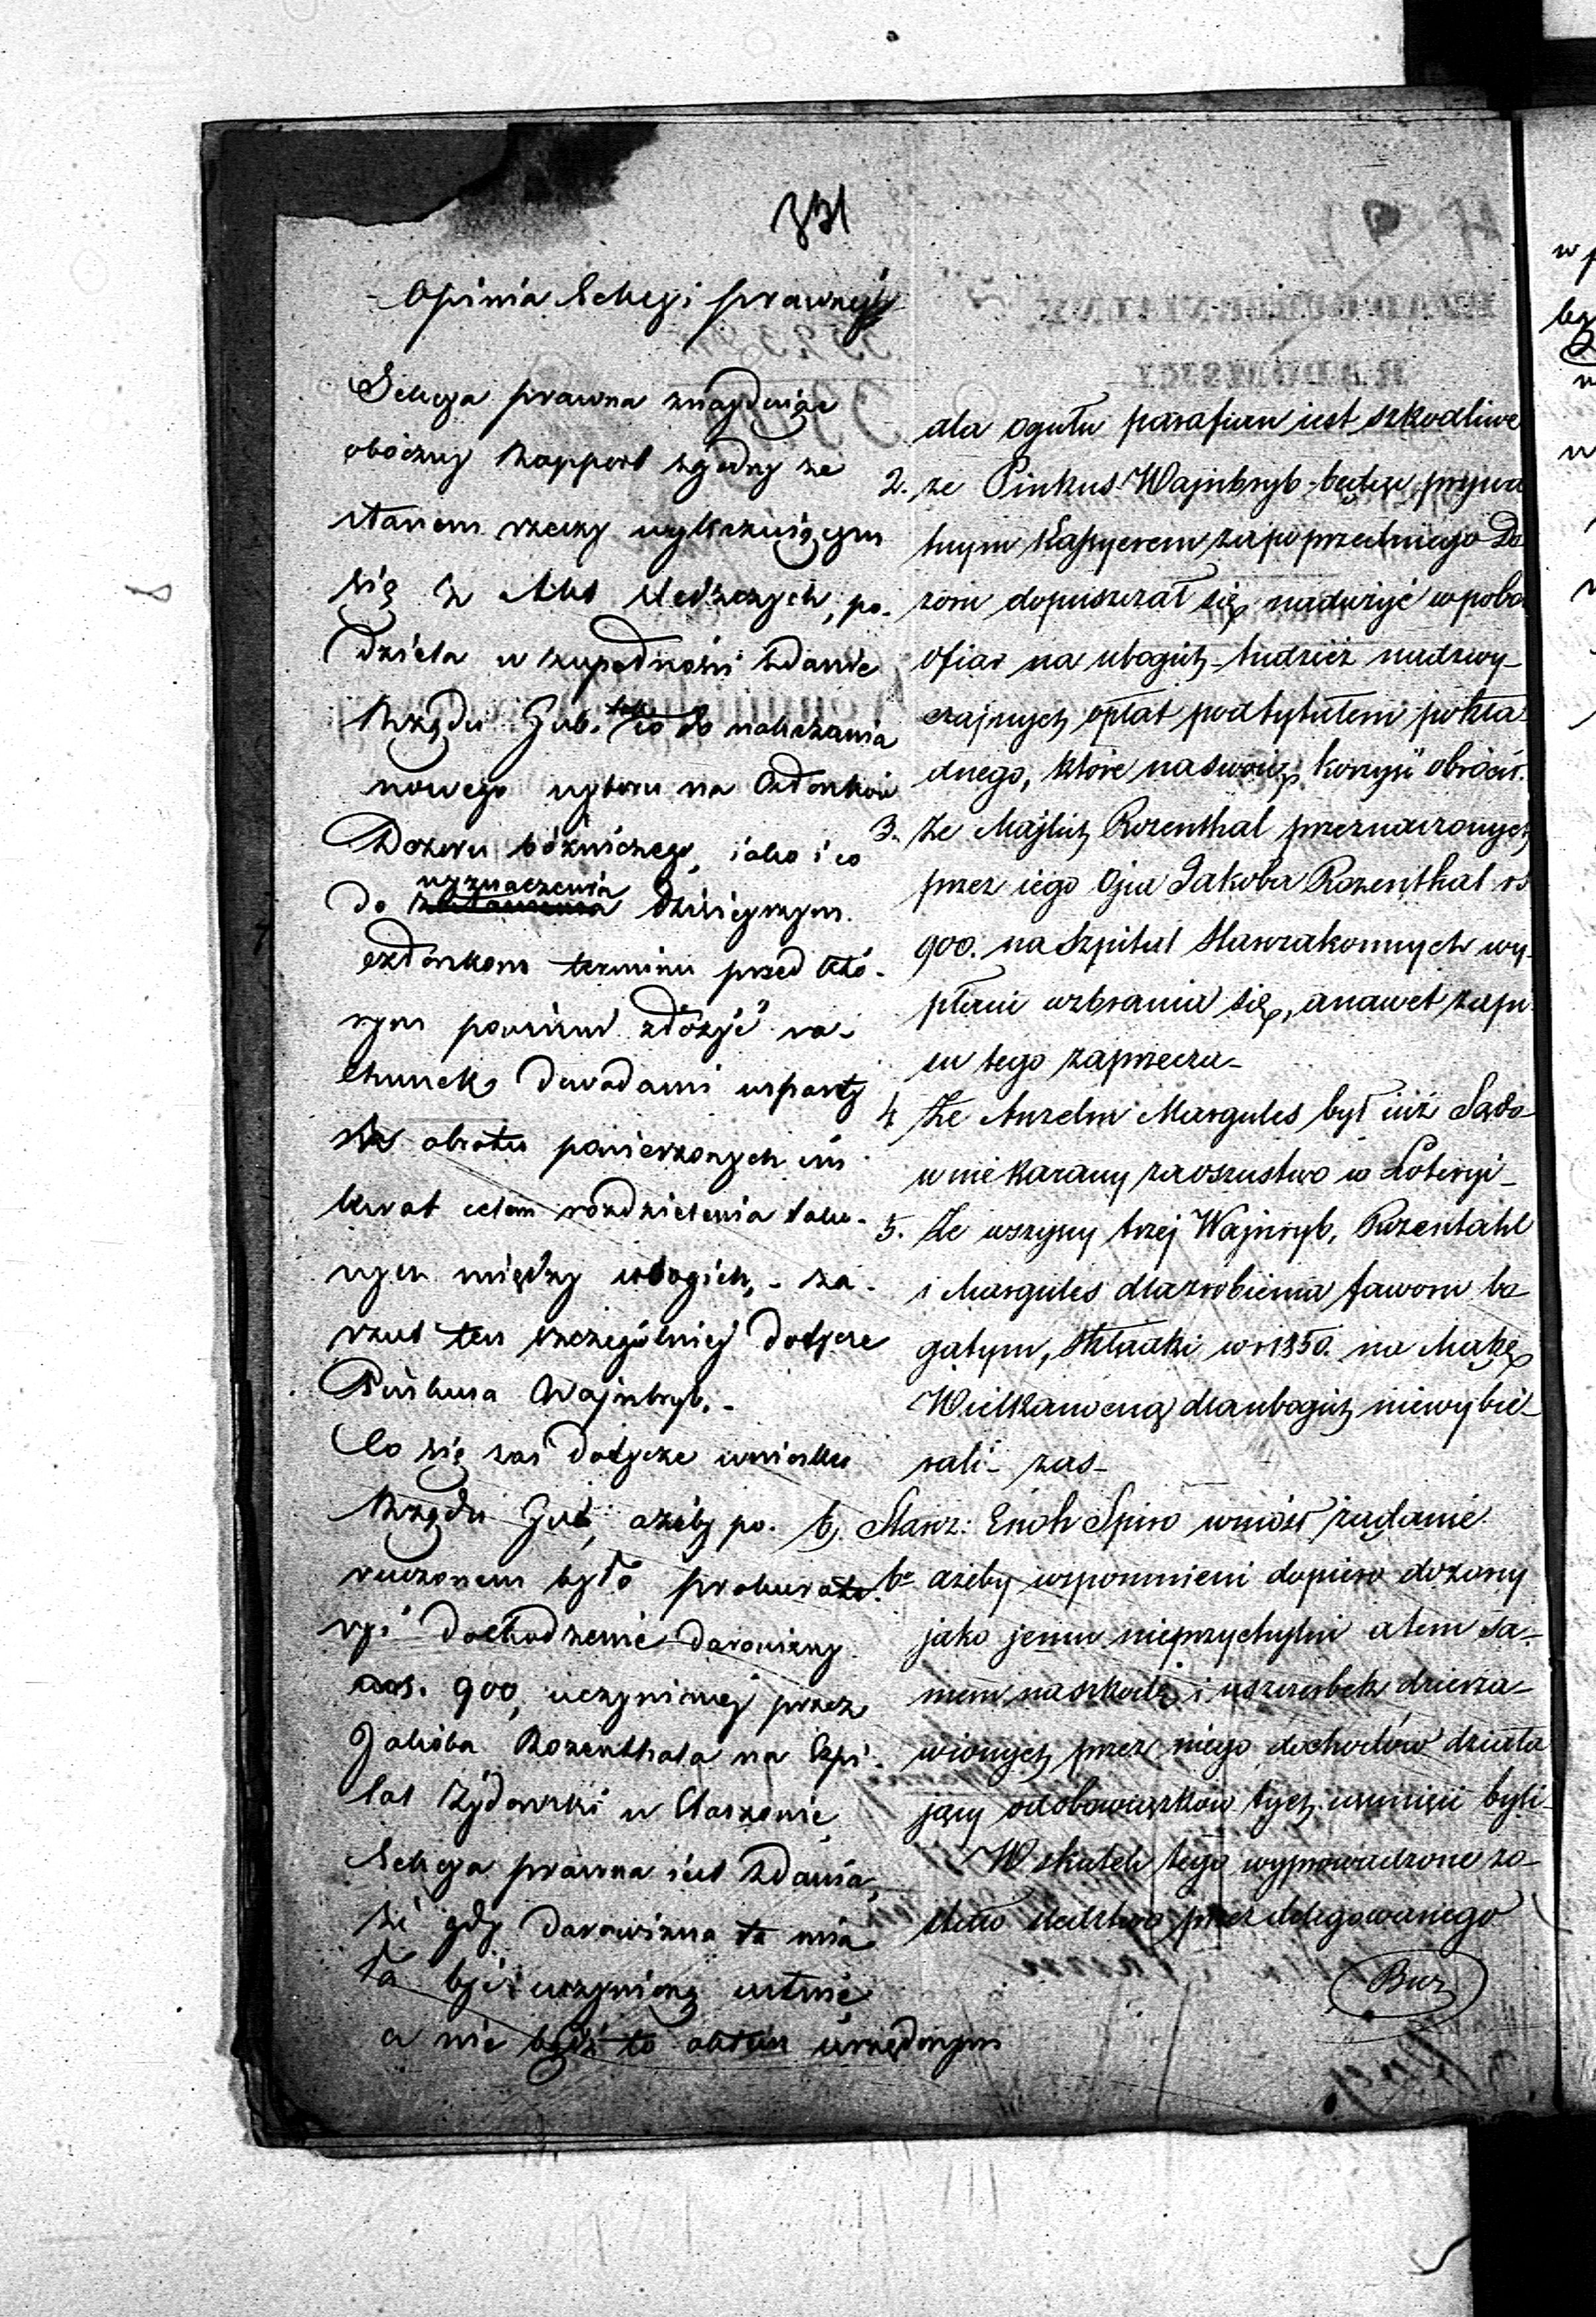 331
Opinia Sekcyi prawnéj
Sekcya prawna znayduiąc
oboczny Rapport zgodny ze
stanem rzeczy wykazuiącym
się z Akt śledczych, po-
dziela w zupełności zdanie
Rządu Gub. tak co do nakazania
nowego wyboru na Członków
Dozoru bóżniczego, iako i co
do wyznaczenia dzisieyszym
członkom terminu przed któ-
rym powinni złożyć ra-
chunek dowodami wsparty
z obrotu powierzonych im
kwot celem rozdzielenia tako-
wych między ubogich, - za-
rzut ten szczególniéj dotycze
Pinkusa Wajnbryb. -
Co się zaś dotycze wniosku
Rządu Gub, ażeby po-
ruczonem było prokurato-
ryi dochodzenie darowizny
rs. 900, uczynionéj przez
Jakóba Rozenthala na Szpi-
tal Żydowski w Staszowie
Sekcya prawna iest zdania,
że gdy darowizna ta mia-
ła być uczynioną ustnie
a nie bądź to aktem urzędowym
dla ogółu parafian iest szkodliwe
2. że Pinkus Wajnbryb będąc prywa
tnym Kassyerem za poprzedniego Do
zoru dopuszczał się nadużyć w pobo
ofiar na ubogich tudzież nadzwy-
czajnych opłat pod tytułem pokła
dnego, które na swoią korzyść obrócił.
3. Że Majlich Rozenthal przeznaczonych
przez iego Ojca Jakóba Rozenthal rs
900. na Szpital Starozakonnych wy-
płacić wzbrania się, a nawet zapi
su tego zaprzecza -
4 Że Anzelm Margules był iuż Sądo-
wnie karany za oszustwo w Loteryi -
5. Że wszyscy trzej Wajnryb, Rozentahl
i Margules dla zrobienia faworu bo-
gatym, składki w r 1850. na Mąkę
Wielkanocną dla ubogich niewybie-
rali - zaś -
6. Starz: Enoh Spiro wniósł żądanie
be ażeby wspomnieni dopiero dozorcy
jako jemu nieprzychylni a tem sa-
mem na szkodę i uszczerbek dzierża-
wionych przez niego dochodów działa
jący od obowiązków tych usunięci byli -
W skutek tego wyprowadzone zo-
stało śledztwo przez delegowanego